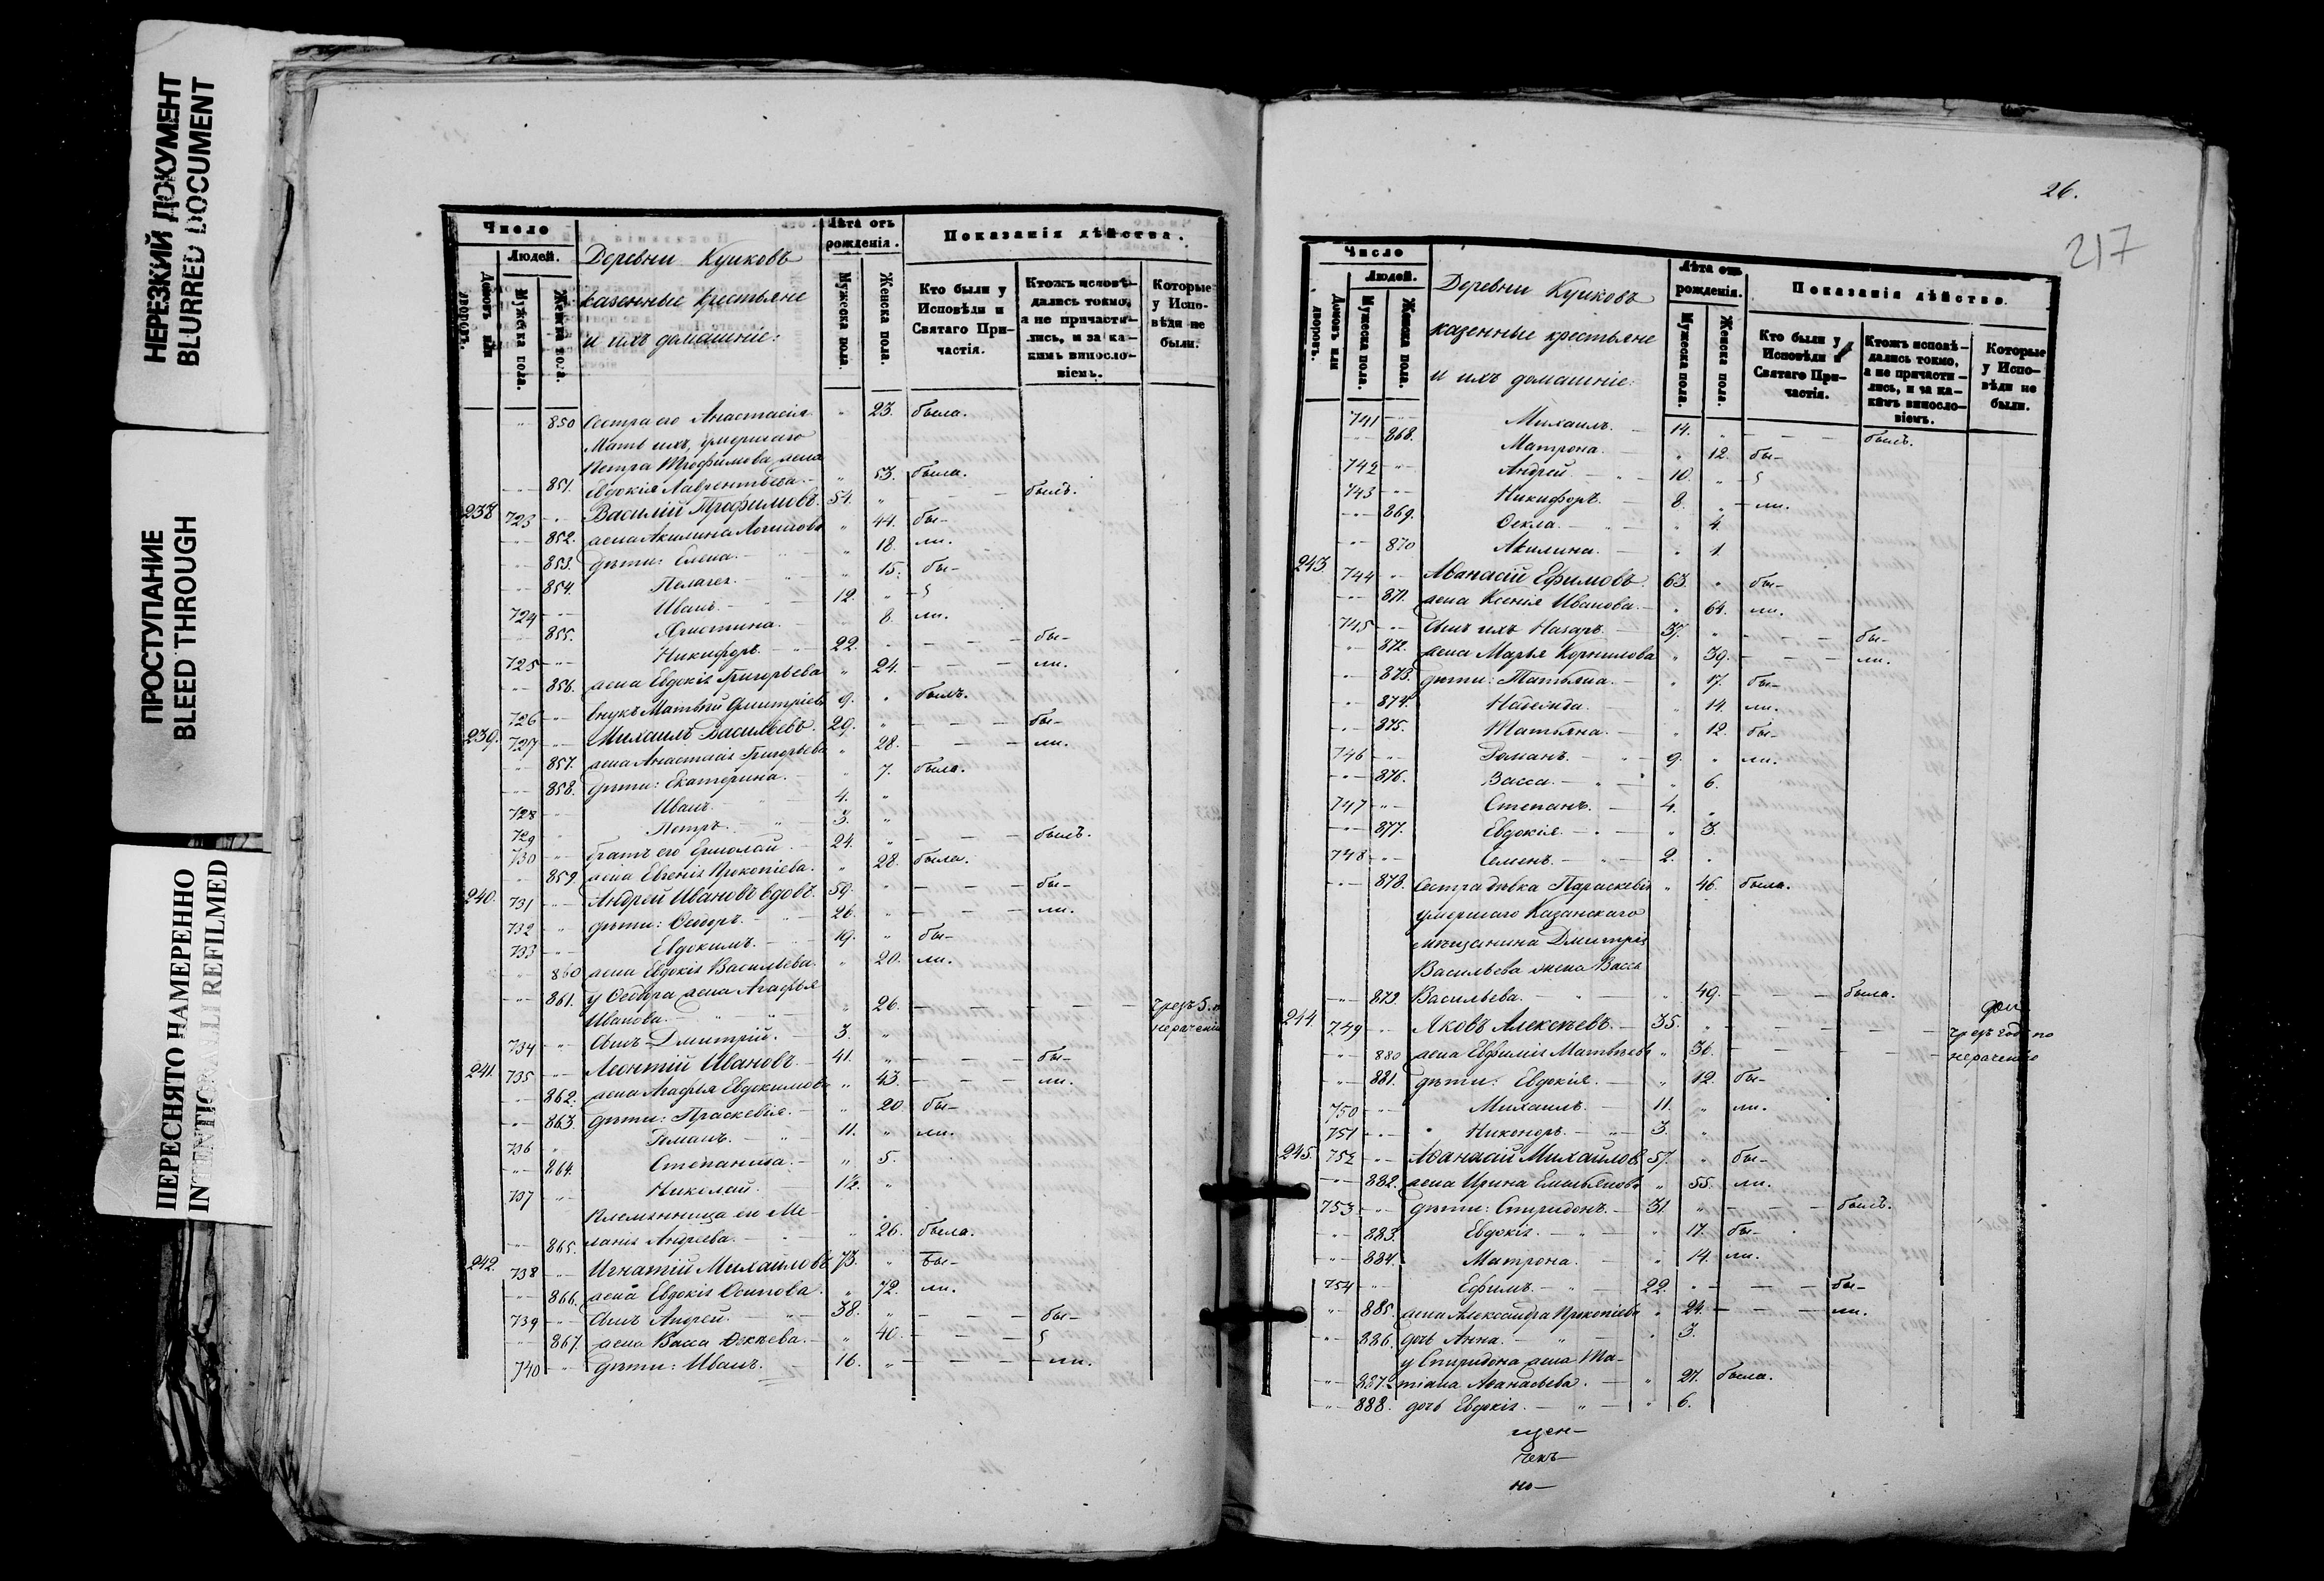 НЕРЕЗКИЙ ДОКУМЕНТ
BLURRED DOCUMENT
ПРОСТУПАНИЕ
BLEED THROUGH
ПЕРЕСНЯТО НАМЕРЕННО
INTENTIONALLY REFILMED
Число
Людей.
Домовъ или дворовъ.
Мужеска пола.
Женска пола.
Деревни Куиковъ
казенные крестьяне
и ихъ домашніе:
Лѣта отъ рожденія.
Мужеска пола.
Женска пола.
Показанія дѣйства.
Кто были у Исповѣди и Святаго Причастія.
Ктожъ исповѣдались токмо, а не причастились, и за какимъ винословіемъ.
Которые у Исповѣди не были.
" 850 Сестра его Анастасія " 23. была.
Мать ихъ, умершаго
Петра Трофимова жена
" 851. Евдокія Лаврентьева. " 53. была.
238 723 " Василій Трофимовъ. 54. " былъ.
" 852. жена Акилина " 44. бы-
" 853. дѣти: Елена. " 18. ли.
" 854. Пелагея. " 15. бы-
724 " Иванъ. 12. "
" 855. Христина. " 8. ли.
725 " Никифоръ. 22. " бы-
" 856. жена Евдокія Григорьева " 24. ли.
726 " внукъ Матвѣй Дмитріевъ 9. " былъ.
239. 727 " Михаилъ Васильевъ. 29. " бы-
" 857. жена Анастасія Григорьева " 28. ли.
" 858. дѣти: Екатерина. " 7. была.
728 " Иванъ. 4. "
729 " Петръ. 3. "
730 " братъ его Ермолай. 24. " былъ.
" 859. жена Евгенія Прокопіева. " 28. была.
240. 731 " Андрей Ивановъ вдовъ. 59. " бы-
732 " дѣти: Ѳедоръ. 26. " ли.
733 " Евдокимъ. 19. " бы-
" 860 жена Евдокія Васильева. " 20. ли.
" 861. у Ѳедора жена Агафья
Иванова. " 26. чрезъ 5. нерачені
734 " сынъ Дмитрій. 3. "
241. 735 " Леонтій Ивановъ. 41. " бы-
" 862. жена Агафья Евдокимова " 43. ли.
" 863. дѣти: Праскевія. " 20 бы-
736 " Романъ. 11. " ли.
" 864. Степанида. " 5.
737 " Николай. 1½. "
Племянница ея Ме-
" 865. ланія Андреева. " 26. была.
242. 738 " Игнатій Михайловъ 73. " бы-
" 866. жена Евдокія Осипова. " 72. ли.
739 " сынъ Андрей. 38. " бы-
" 867. жена Васса " 40.
740 " дѣти: Иванъ. 16. " ли.
26.
217
Число
Людей.
Домовъ или дворовъ.
Мужеска пола.
Женска пола.
Деревни Куиковъ
казенные крестьяне
и ихъ домашніе:
Лѣта отъ рожденія.
Мужеска пола.
Женска пола.
Показанія дѣйства.
Кто были у Исповѣди и Святаго Причастія.
Ктожъ исповѣдались токмо, а не причастились, и за какимъ винословіемъ.
Которые у Исповѣди не были.
741 " Михаилъ. 14. " былъ.
" 868. Матрона. " 12. бы-
742 " Андрей. 10. "
743 " Никифоръ. 8. " ли.
" 869. Ѳекла. " 4.
" 870 Акилина. " 1.
243. 744 " Аѳанасій Ефимовъ. 63. " бы-
" 871. жена Ксенія Иванова. " 64. ли.
745 " сынъ ихъ Назаръ. 37. " бы-
" 872. жена Марья Корнилова " 39. ли.
" 873. дѣти: Татьяна. " 17. бы-
" 874. Надежда. " 14. ли.
" 875. Татьяна. " 12. бы-
746 " Романъ. 9. " ли.
" 876. Васса. " 6.
747 " Степанъ. 4. "
" 877. Евдокія. " 3.
748 " Семенъ. 2. "
" 878. Сестра дѣвка Параскевія " 46. была.
умершаго Казанскаго
мѣщанина Дмитрія
Васильева жена Васса
" 879. Васильева. " 49. была.
244. 749 " Яковъ Алексѣевъ. 35. " чрезъ годъ по нераченію
" 880 жена Евфимія Матвѣева " 36.
" 881. дѣти: Евдокія. " 12. бы-
750 " Михаилъ. 11. " ли.
751 " Никоноръ. 3. "
245. 752 " Аѳанасій Михайловъ. 57. " бы-
" 882. жена Ирина Емельянова " 55. ли.
753 " дѣти: Спиридонъ. 31. " былъ.
" 883. Евдокія. " 17. бы-
" 884. Матрона. " 14. ли.
754 " Ефимъ. 22. " бы-
" 885. жена Александра Прокопіева " 24. ли.
" 886. дочь Анна. " 3.
у Спиридона жена Та-
" 887. тіана Аѳанасьева. " 27. была.
" 888. дочь Евдокія. " 6.
щен-
но-